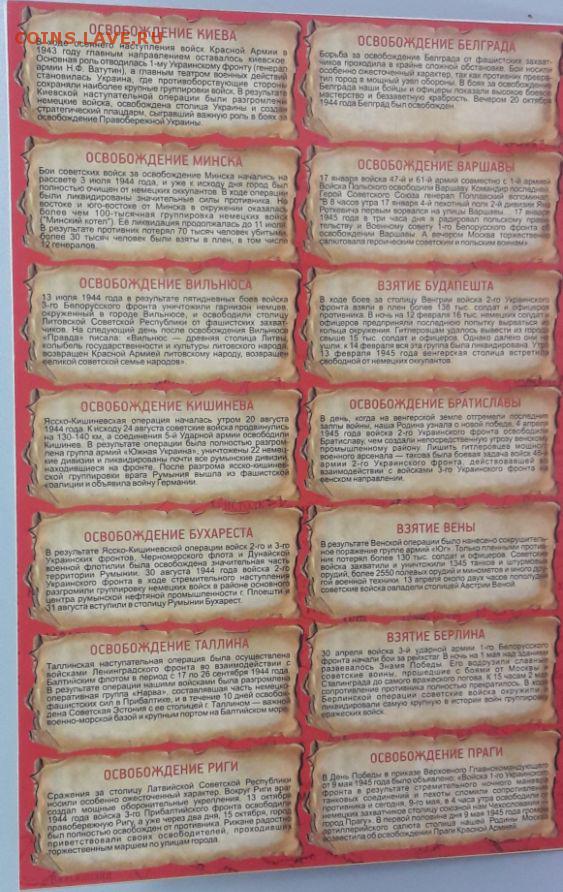 COINS.LAVE.RU
ОСВОБОЖДЕНИЕ КИЕВА
В ходе осеннего наступления войск Красной Армии в
1943 году главным направлением оставалось киевское.
Основная роль отводилась 1-му Украинскому фронту (генерал
армии Н.Ф. Ватутин), а главным театром военных действий
становилась Украина, где противоборствующие стороны
сохраняли наиболее крупные группировки войск. В результате
Киевской наступательной операции были разгромлены
немецкие войска, освобождена столица Украины и создан
стратегический плацдарм, сыгравший важную роль в боях за
освобождение Правобережной Украины.
ОСВОБОЖДЕНИЕ МИНСКА
Бои советских войск за освобождение Минска начались на
рассвете 3 июля 1944 года, и уже к исходу дня город был
полностью очищен от немецких оккупантов. В ходе операции
были ликвидированы значительные силы противника. На
востоке и юго-востоке от Минска в окружении оказалась
более чем 100-тысячная группировка немецких войск
("Минский котел"). Её ликвидация продолжалась до 11 июля.
В результате противник потерял 70 тысяч человек убитыми,
более 30 тысяч человек были взяты в плен, в том числе
12 генералов.
ОСВОБОЖДЕНИЕ ВИЛЬНЮСА
13 июля 1944 в результате пятидневных боев войска
3-го Белорусского фронта уничтожили гарнизон немцев,
окруженный в городе Вильнюс, и освободили столицу
Литовской Советской Республики от фашистских захват-
чиков. На следующий день после освобождения Вильнюса
«Правда» писала: «Вильнюс — древняя столица Литвы,
колыбель государственности и культуры литовского народа,
возвращен Красной Армией литовскому народу, возвращен
великой советской семье народов».
ОСВОБОЖДЕНИЕ КИШИНЕВА
Ясско-Кишиневская операция началась утром 20 августа
1944 года. К исходу 24 августа советские войска продвинулись
на 130-140 км, а соединения 5-й Ударной армии освободили
Кишинев. В результате операции была полностью разгром-
лена группа армий «Южная Украина», уничтожены 22 немец-
кие дивизии и ликвидированы почти все румынские дивизии,
находившиеся на фронте. После разгрома ясско-кишинев-
ской группировки врага Румыния вышла из фашистской
коалиции и объявила войну Германии.
ОСВОБОЖДЕНИЕ БУХАРЕСТА
В результате Ясско-Кишиневской операции войск 2-го и 3-го
Украинских фронтов, Черноморского флота и Дунайской
военной флотилии была освобождена значительная часть
территории Румынии. 30 августа 1944 года войска 2-го
Украинского фронта в ходе стремительного наступления
разгромили группировку немецких войск в районе основного
центра румынской нефтяной промышленности г. Плоешти и
31 августа вступили в столицу Румынии Бухарест.
ОСВОБОЖДЕНИЕ ТАЛЛИНА
Таллинская наступательная операция была осуществлена
войсками Ленинградского фронта во взаимодействии с
Балтийским флотом в период с 17 по 26 сентября 1944 года.
В результате операции нашими войсками была разгромлена
оперативная группа «Нарва», составлявшая часть немецко-
фашистских сил в Прибалтике, и в течение 10 дней освобож-
дена Советская Эстония с ее столицей г. Таллином — важной
военно-морской базой и крупным портом на Балтийском море.
ОСВОБОЖДЕНИЕ РИГИ
Сражения за столицу Латвийской Советской Республики
носили особенно ожесточенный характер. Вокруг Риги враг
создал мощные оборонительные укрепления. 13 октября
1944 года войска 3-го Прибалтийского фронта освободили
правобережную Ригу, а уже через два дня, 15 октября, город
был полностью освобожден от противника. Рижане радостно
приветствовали своих освободителей, проходивших
торжественным маршем по улицам города.
ОСВОБОЖДЕНИЕ БЕЛГРАДА
Борьба за освобождение Белграда от фашистских захват-
чиков проходила в крайне сложной обстановке. Бои носили
особенно ожесточенный характер, так как противник превра-
тил город в мощный узел обороны. В боях за освобождение
Белграда наши бойцы и офицеры показали высокое боевое
мастерство и беззаветную храбрость. Вечером 20 октября
1944 года Белград был освобожден.
ОСВОБОЖДЕНИЕ ВАРШАВЫ
17 января войска 47-й и 61-й армий совместно с 1-й армией
Войска Польского освободили Варшаву. Командир последней
Герой Советского Союза генерал Поплавский вспоминал:
"В 8 часов утра 17 января 4-й пехотный полк 2-й дивизии Яна
Роткевича первым ворвался на улицы Варшавы... 17 января
1945 года в три часа дня я радировал польскому прави-
тельству и Военному совету 1-го Белорусского фронта об
освобождении Варшавы. А вечером Москва торжественно
салютовала героическим советским и польским воинам»
ВЗЯТИЕ БУДАПЕШТА
В ходе боев за столицу Венгрии войска 2-го Украинского
фронта взяли в плен более 138 тыс. солдат и офицеров
противника. В ночь на 12 февраля 16 тыс. немецких солдат и
офицеров предприняли последнюю попытку вырваться из
кольца окружения. Гитлеровцам удалось вывести из города
свыше 15 тыс. солдат и офицеров. Однако далеко они не
ушли: к 14 февраля вся эта группа была ликвидирована. Утро
13 февраля 1945 года венгерская столица встретила
свободной от немецких оккупантов.
ОСВОБОЖДЕНИЕ БРАТИСЛАВЫ
В день, когда на венгерской земле отгремели последние
залпы войны, наша Родина узнала о новой победе. 4 апреля
1945 года войска 2-го Украинского фронта освободили
Братиславу, чем создали непосредственную угрозу венскому
промышленному району. Лишить гитлеровцев мощного
военного арсенала — такова была боевая задача войск 46-й
армии 2-го Украинского фронта, действовавшей во
взаимодействии с войсками 3-го Украинского фронта на
венском направлении.
ВЗЯТИЕ ВЕНЫ
В результате Венской операции было нанесено сокрушитель-
ное поражение группе армий «Юг». Только пленными против-
ник потерял более 130 тыс. солдат и офицеров. Советские
войска захватили и уничтожили 1345 танков и штурмовых
орудий, более 2550 полевых орудий и минометов и много дру-
гой военной техники. 13 апреля около двух часов пополудни
советские войска овладели столицей Австрии Веной.
ВЗЯТИЕ БЕРЛИНА
30 апреля войска 3-й ударной армии 1-го Белорусского
фронта начали бои за рейхстаг. В ночь на 1 мая над зданием
развевалось Знамя Победы. Его водрузили славные
советские воины, прошедшие с боями от Москвы и
Сталинграда до самого вражеского логова. К 15 часам 2 мая
сопротивление противника полностью прекратилось. В ходе
Берлинской операции советские войска окружили и
ликвидировали самую крупную в истории войн группировку
вражеских войск.
ОСВОБОЖДЕНИЕ ПРАГИ
В День Победы в приказе Верховного Главнокомандующего
от 9 мая 1945 года было объявлено: «Войска 1-го Украинского
фронта в результате стремительного ночного маневра
танковых соединений и пехоты сломили сопротивление
противника и сегодня, 9-го мая, в 4 часа утра освободили от
немецких захватчиков столицу союзной нам Чехословакии
город Прагу». В первой половине дня 9 мая 1945 года громом
артиллерийского салюта столица нашей Родины Москва
возвестила об освобождении Праги Красной Армией.